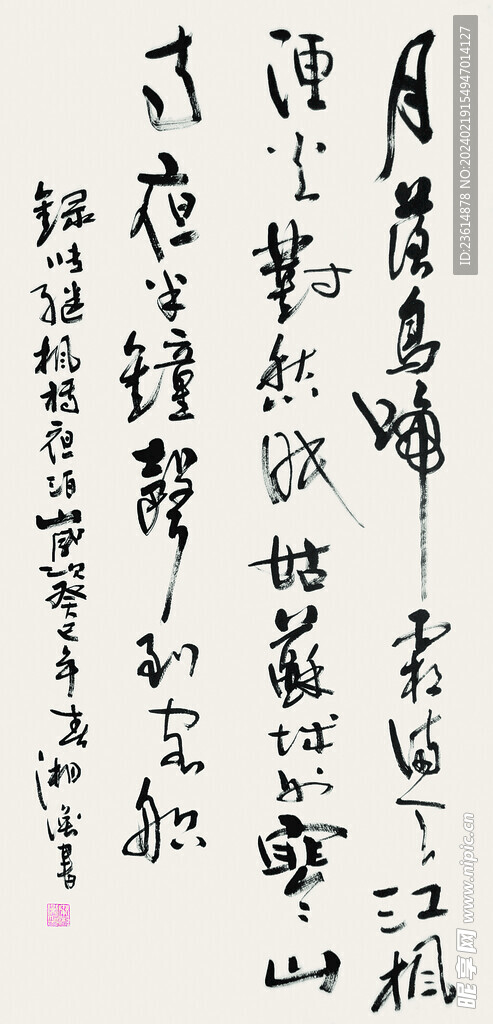 月落烏啼霜滿天江楓
漁火對愁眠姑蘇城外寒山
寺夜半鐘聲到客船
錄張繼楓橋夜泊歲次癸巳年春湘書
ID:23614878 NO:20240219154947014127
昵享网 www.nipic.cn